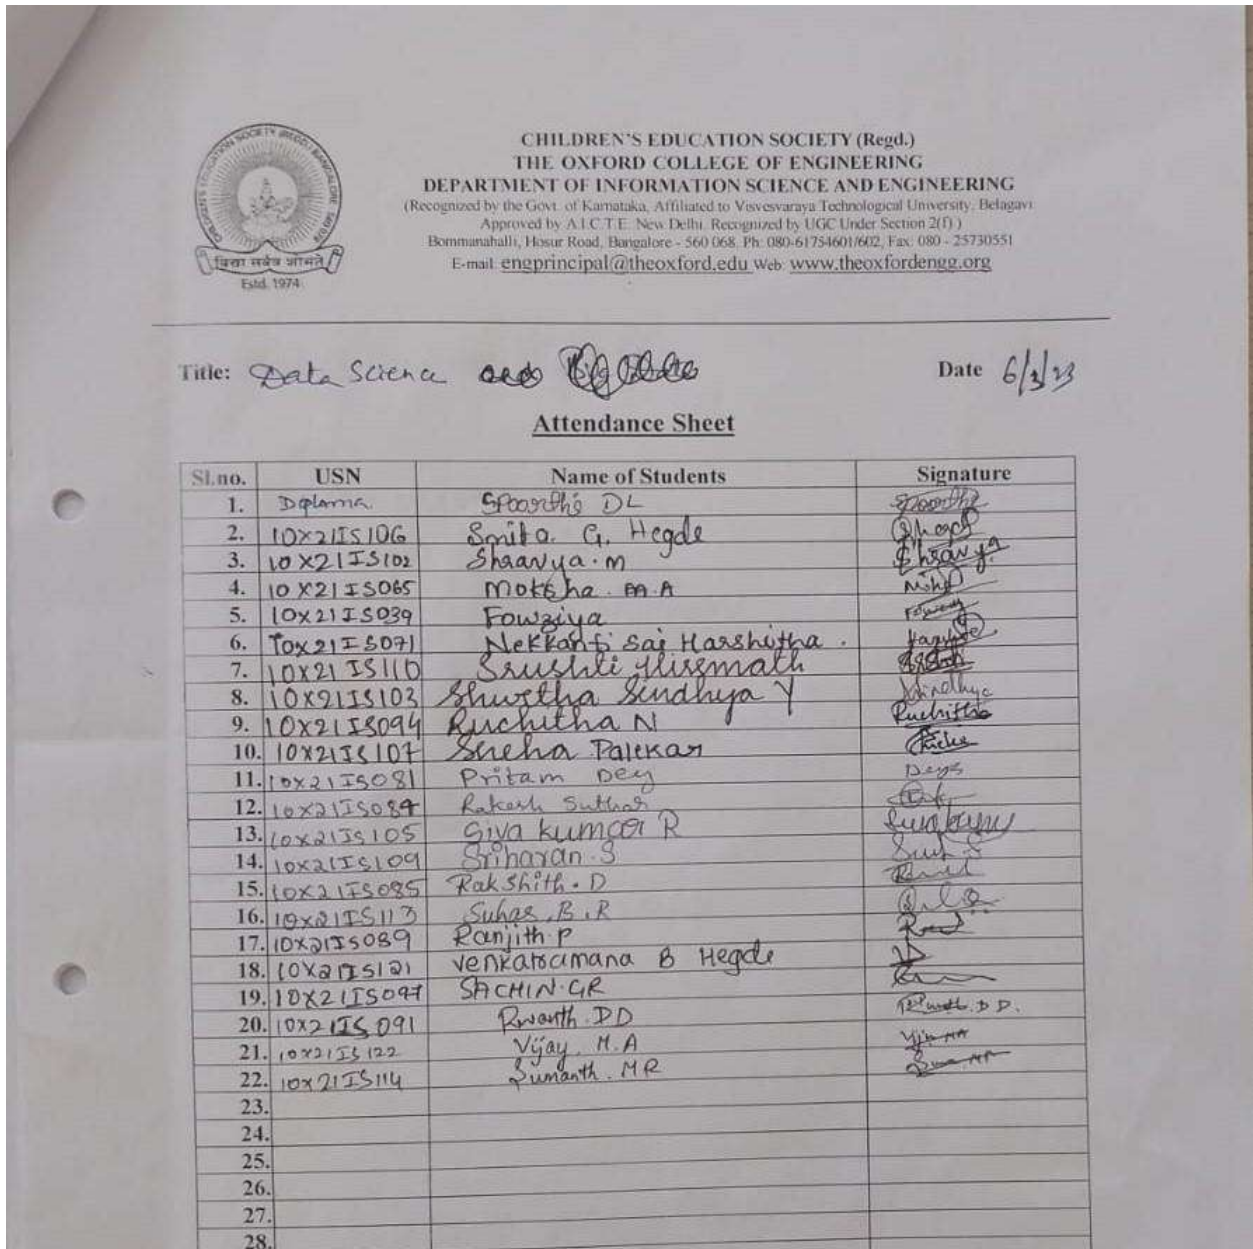 CHILDREN'S EDUCATION SOCIETY (REGD.) BANGALORE
विद्या सर्वत्र शोभते
Estd. 1974
CHILDREN'S EDUCATION SOCIETY (Regd.)
THE OXFORD COLLEGE OF ENGINEERING
DEPARTMENT OF INFORMATION SCIENCE AND ENGINEERING
(Recognized by the Govt. of Karnataka, Affiliated to Visvesvaraya Technological University, Belagavi
Approved by A.I.C.T.E. New Delhi. Recognized by UGC Under Section 2(f) )
Bommanahalli, Hosur Road, Bangalore - 560 068. Ph: 080-61754601/602, Fax: 080 - 25730551
E-mail: engprincipal@theoxford.edu Web: www.theoxfordengg.org
Title: Data Science Date
Attendance Sheet
Sl.no. USN Name of Students Signature
1. Diploma Spoorthi DL Spoorthi
2. 1OX21IS106 Smita. G. Hegde
3. 1OX21IS102 Shravya.M Shravya
4. 1OX21IS065 Moksha. M.A
5. 1OX21IS039 Fowziya
6. 1OX21IS071 Nekkanti Sai Harshitha
7. 1OX21IS110 Srushti Hiremath
8. 1OX21IS103 Shwetha Sindhya Y
9. 1OX21IS094 Ruchitha N Ruchitha
10. 1OX21IS107 Sneha Palekar
11. 1OX21IS081 Pritam Dey
12. Rakesh Suthar
13. 1OX21IS105 Siva kumar R
14. 1OX21IS109 Sriharan.S
15. 1OX21IS085 Rakshith.D
16. 1OX21IS113 Suhas.B.R
17. 1OX21IS089 Ranjith.P
18. 1OX21IS121 Venkataramana B Hegde
19. 1OX21IS097 SACHIN.GR
20. 1OX21IS091 DD
21. 1OX21IS122 Vijay. M.A
22. 1OX21IS114 Sumanth. MR
23.
24.
25.
26.
27.
28.